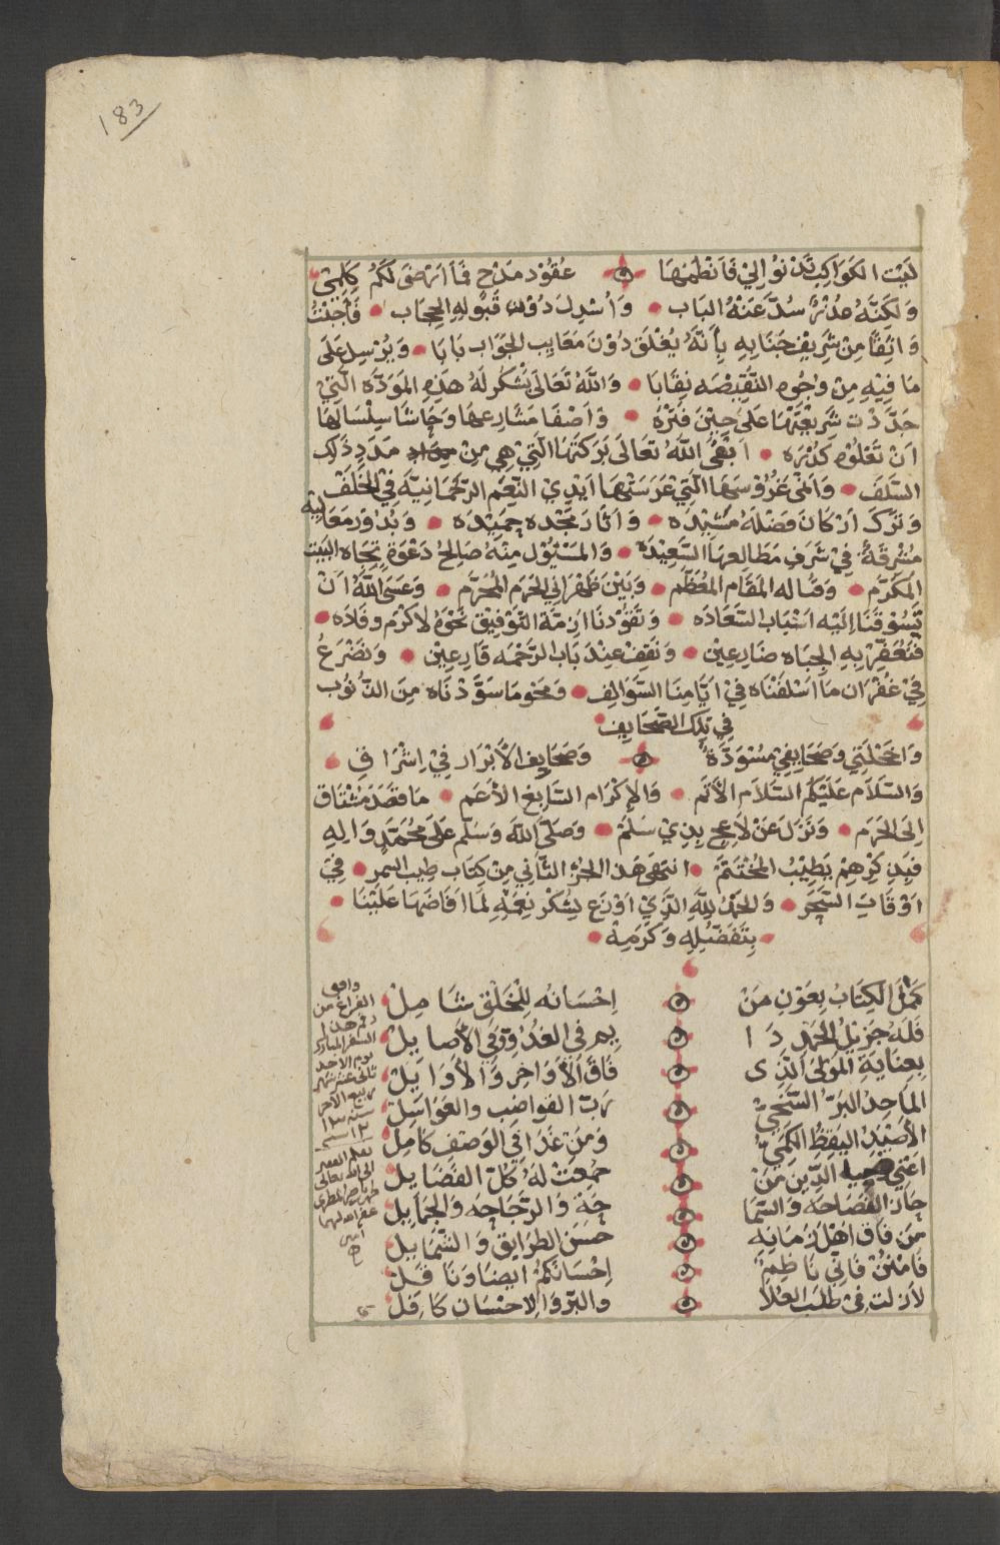 183
ليت الكواكب تدنو إلي فأنظمها عقود مدح فما أرضى لكم كلمي
ولكنه مدثر سد عنه الباب وأسدل دون قبوله الحجاب فأجبت
واثقا من شريف جنابه بأنه يغلق دون معايب الجواب بابا ويرسل على
ما فيه من وجوه النقيصه نقابا والله تعالى نشكر له هذه المودّه التي
جدّدت شريعتها على حين فتره وأصفا مشارعها وحاشا سلسالها
أن تعلوه كدره أبقى الله تعالى بركتها التي هي من مدد ذلك
السلف وأنمى غروسها التي غرستها أيدي النعم الرحمانية في الخلف
وترك أركان فضله مشيده وآثار مجده حميده وبدور معاليه
مشرقة في شرف مطالعها السعيدة والمسئول منه صالح دعوة تجاه البيت
المكرّم وقباله المقام المعظم وبين ظهراني الحرم المحرّم وعسى الله أن
تسوقنا إليه أسباب السعاده وتقودنا أزمّة التوفيق نحوه لأكرم وفاده
فنعفّر به الجباه ضارعين ونقف عند باب الرحمه قارعين ونضرع
في غفران ما أسلفناه في أيامنا السوالف ومحو ما سوّدناه من الذنوب
في تلك الصحايف
واخجلتي وصحايفي مسودّة وصحايف الأبرار في إشراق
والسلام عليكم السلام الأتم والإكرام السابغ الأعم ما قصد مشتاق
إلى الحرم ونزل عن لاعج بذي سلم وصلى الله وسلم على محمد وآله
فبذكرهم يطيب المختتم انتهى هذا الجزء الثاني من كتاب طيب السمر في
أوقات السحر والحمد لله الذي أوزع لشكر نعمه لما أفاضها علينا
بتفضله وكرمه
كمل الكتاب بعون من إحسانه للخلق شامل
فله جزيل الحمد دا يم في الغدو وفي الأصايل
بعناية المولى الذي فاق الأواخر والأوايل
الماجد البر السخي رب القواضب والعواسل
الأصيد اليقظ الكمي ومن غدا في الوصف كامل
أعني الدين من جمعت له كل الفضايل
حاز الفصاحه والسما حة والرجاجه والجمايل
من فاق أهل زمانه حسن الطرايق والشمايل
فامنن فإني ناظم إحسانكم أيضا ونا قل
لازلت في طلب العلا والبر والاحسان كافل
وافق
الفراغ من
رقم هذا
السفر المبارك
يوم الاحد
ثاني عشر شهر
ربيع الاخر
سنة
بقلم الفقير
الى الله تعالى
غفر الله لهما
امين